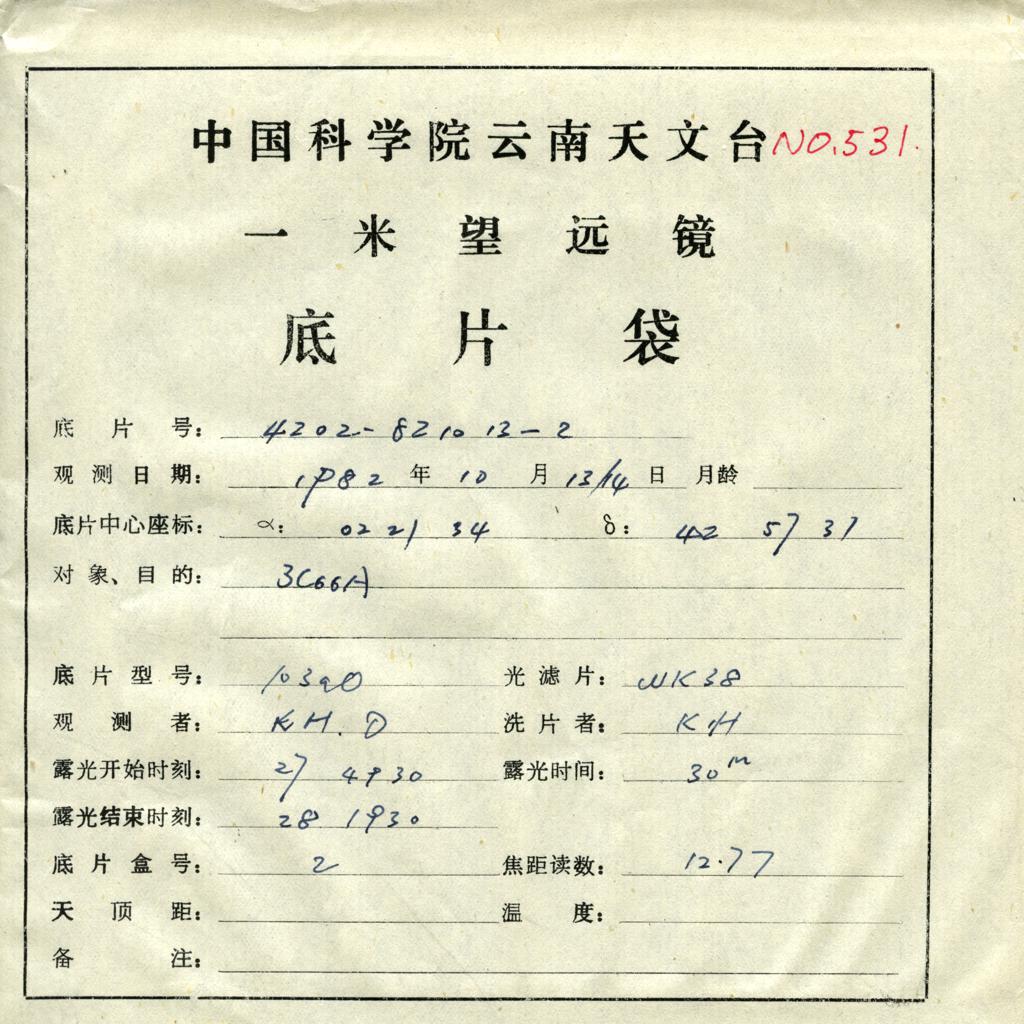 中国科学院云南天文台 NO.531.
一米望远镜
底片袋
底片号： 4202-821013-2
观测日期： 1982 年 10 月 13/14 日 月龄
底片中心座标： α： 02 21 34 δ： 42 57 31
对象、目的： 3C66A
底片型号： 103aO 光滤片： UK38
观测者： KH. D 洗片者： KH
露光开始时刻： 27 49 30 露光时间： 30m
露光结束时刻： 28 19 30
底片盒号： 2 焦距读数： 12.77
天顶距： 温度：
备注：